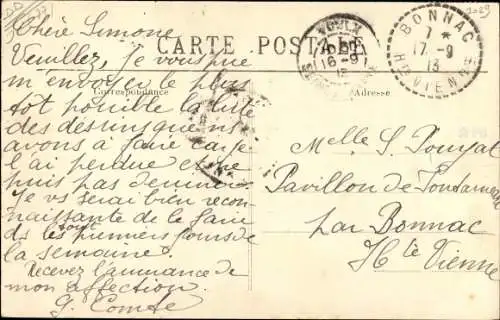 CARTE POSTALE
Correspondance
Adresse
BONNAC
7 *
17 - 9
13
HTE VIENNE
16 - 9
13
Chère Simone
Veuillez, je vous prie
m'envoyer le plus
tôt possible la liste
des dessins que n/s
avons à faire car je
l'ai perdue et ne
puis pas
Je vs serai bien recon-
naissante de la faire
ds les premiers jours de
la semaine.
Recevez l'assurance de
mon affection.
G. Comte
Melle S. Pouyat
Pavillon de
par Bonnac
Hte Vienne